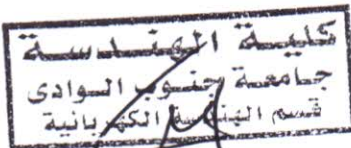 كلية الهندسة
جامعة جنوب الوادى
قسم الهندسة الكهربائية